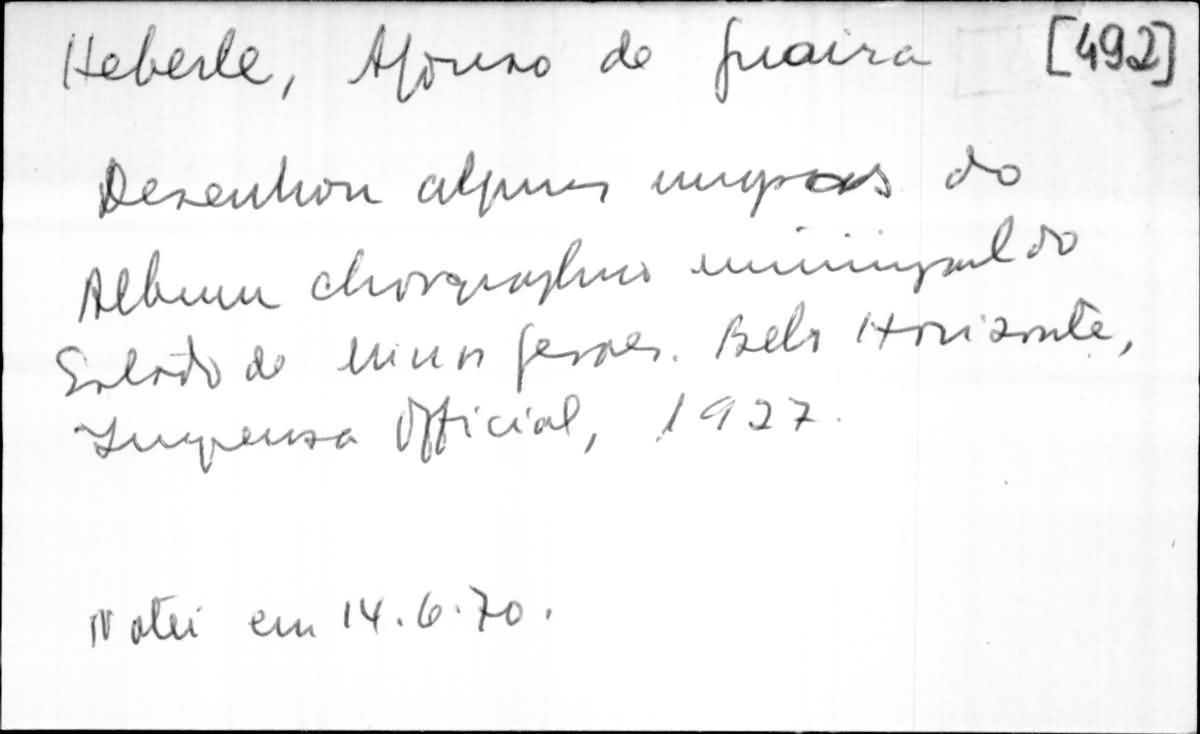 Heberle, Afonso de Guaira [492]
Desenhou alguns mapas do
Album chorographico municipal do
Estado de Minas Geraes. Belo Horizonte,
Imprensa Official, 1927.
Notei em 14.6.70.